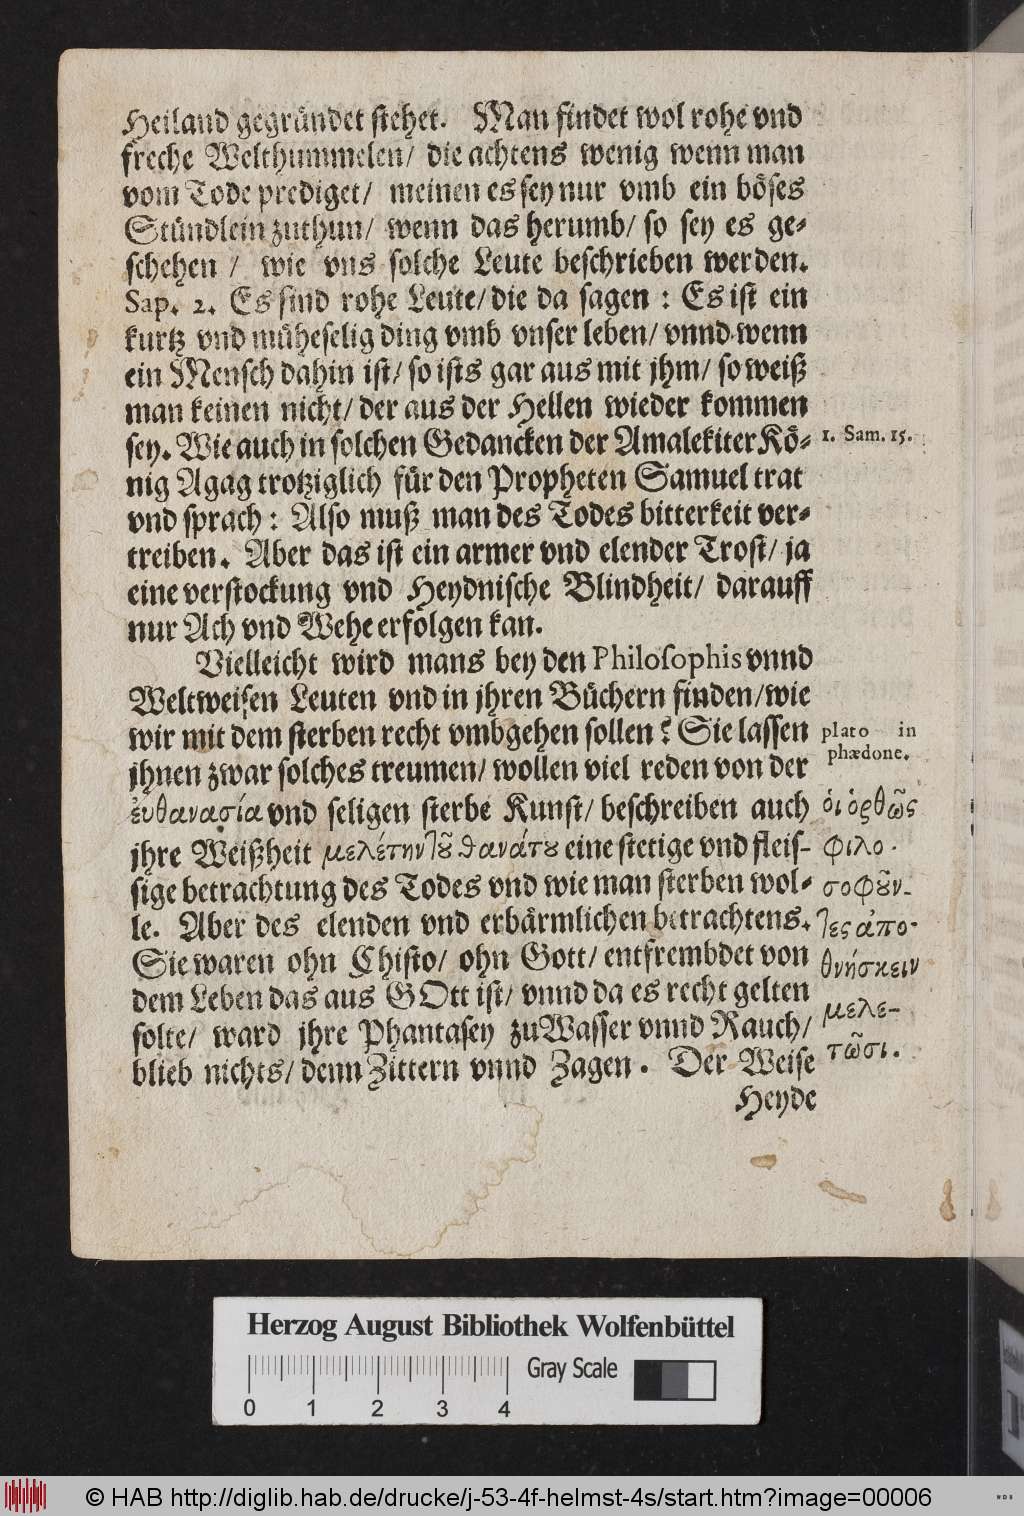 Heiland gegründet stehet. Man findet wol rohe vnd
freche Welthummelen/ die achtens wenig wenn man
vom Tode prediget/ meinen es sey nur vmb ein böses
Stündlein zuthun/ wenn das herumb/ so sey es ge-
schehen / wie vns solche Leute beschrieben werden.
Sap. 2. Es sind rohe Leute/ die da sagen : Es ist ein
kurtz vnd müheselig ding vmb vnser leben/ vnnd wenn
ein Mensch dahin ist/ so ists gar aus mit jhm/ so weiß
man keinen nicht/ der aus der Hellen wieder kommen
sey. Wie auch in solchen Gedancken der Amalekiter Kö-
1. Sam. 15.
nig Agag trotziglich für den Propheten Samuel trat
vnd sprach : Also muß man des Todes bitterkeit ver-
treiben. Aber das ist ein armer vnd elender Trost/ ja
eine verstockung vnd Heydnische Blindheit/ darauff
nur Ach vnd Wehe erfolgen kan.
Vielleicht wird mans bey den Philosophis vnnd
Weltweisen Leuten vnd in jhren Büchern finden/ wie
wir mit dem sterben recht vmbgehen sollen? Sie lassen
jhnen zwar solches treumen/ wollen viel reden von der
εὐθανασία vnd seligen sterbe Kunst/ beschreiben auch
jhre Weißheit μελέτην τοῦ θανάτου eine stetige vnd fleis-
sige betrachtung des Todes vnd wie man sterben wol-
le. Aber des elenden vnd erbärmlichen betrachtens.
Sie waren ohn Chisto/ ohn Gott/ entfrembdet von
dem Leben das aus GOtt ist/ vnnd da es recht gelten
solte/ ward jhre Phantasey zu Wasser vnnd Rauch/
blieb nichts/ denn Zittern vnnd Zagen. Der Weise
Heyde
plato in
phædone.
οἱ ὀρθῶς
φιλο-
σοφοῦν-
τες ἀπο-
θνήσκειν
μελε-
τῶσι.
Herzog August Bibliothek Wolfenbüttel
Gray Scale
0 1 2 3 4
© HAB http://diglib.hab.de/drucke/j-53-4f-helmst-4s/start.htm?image=00006